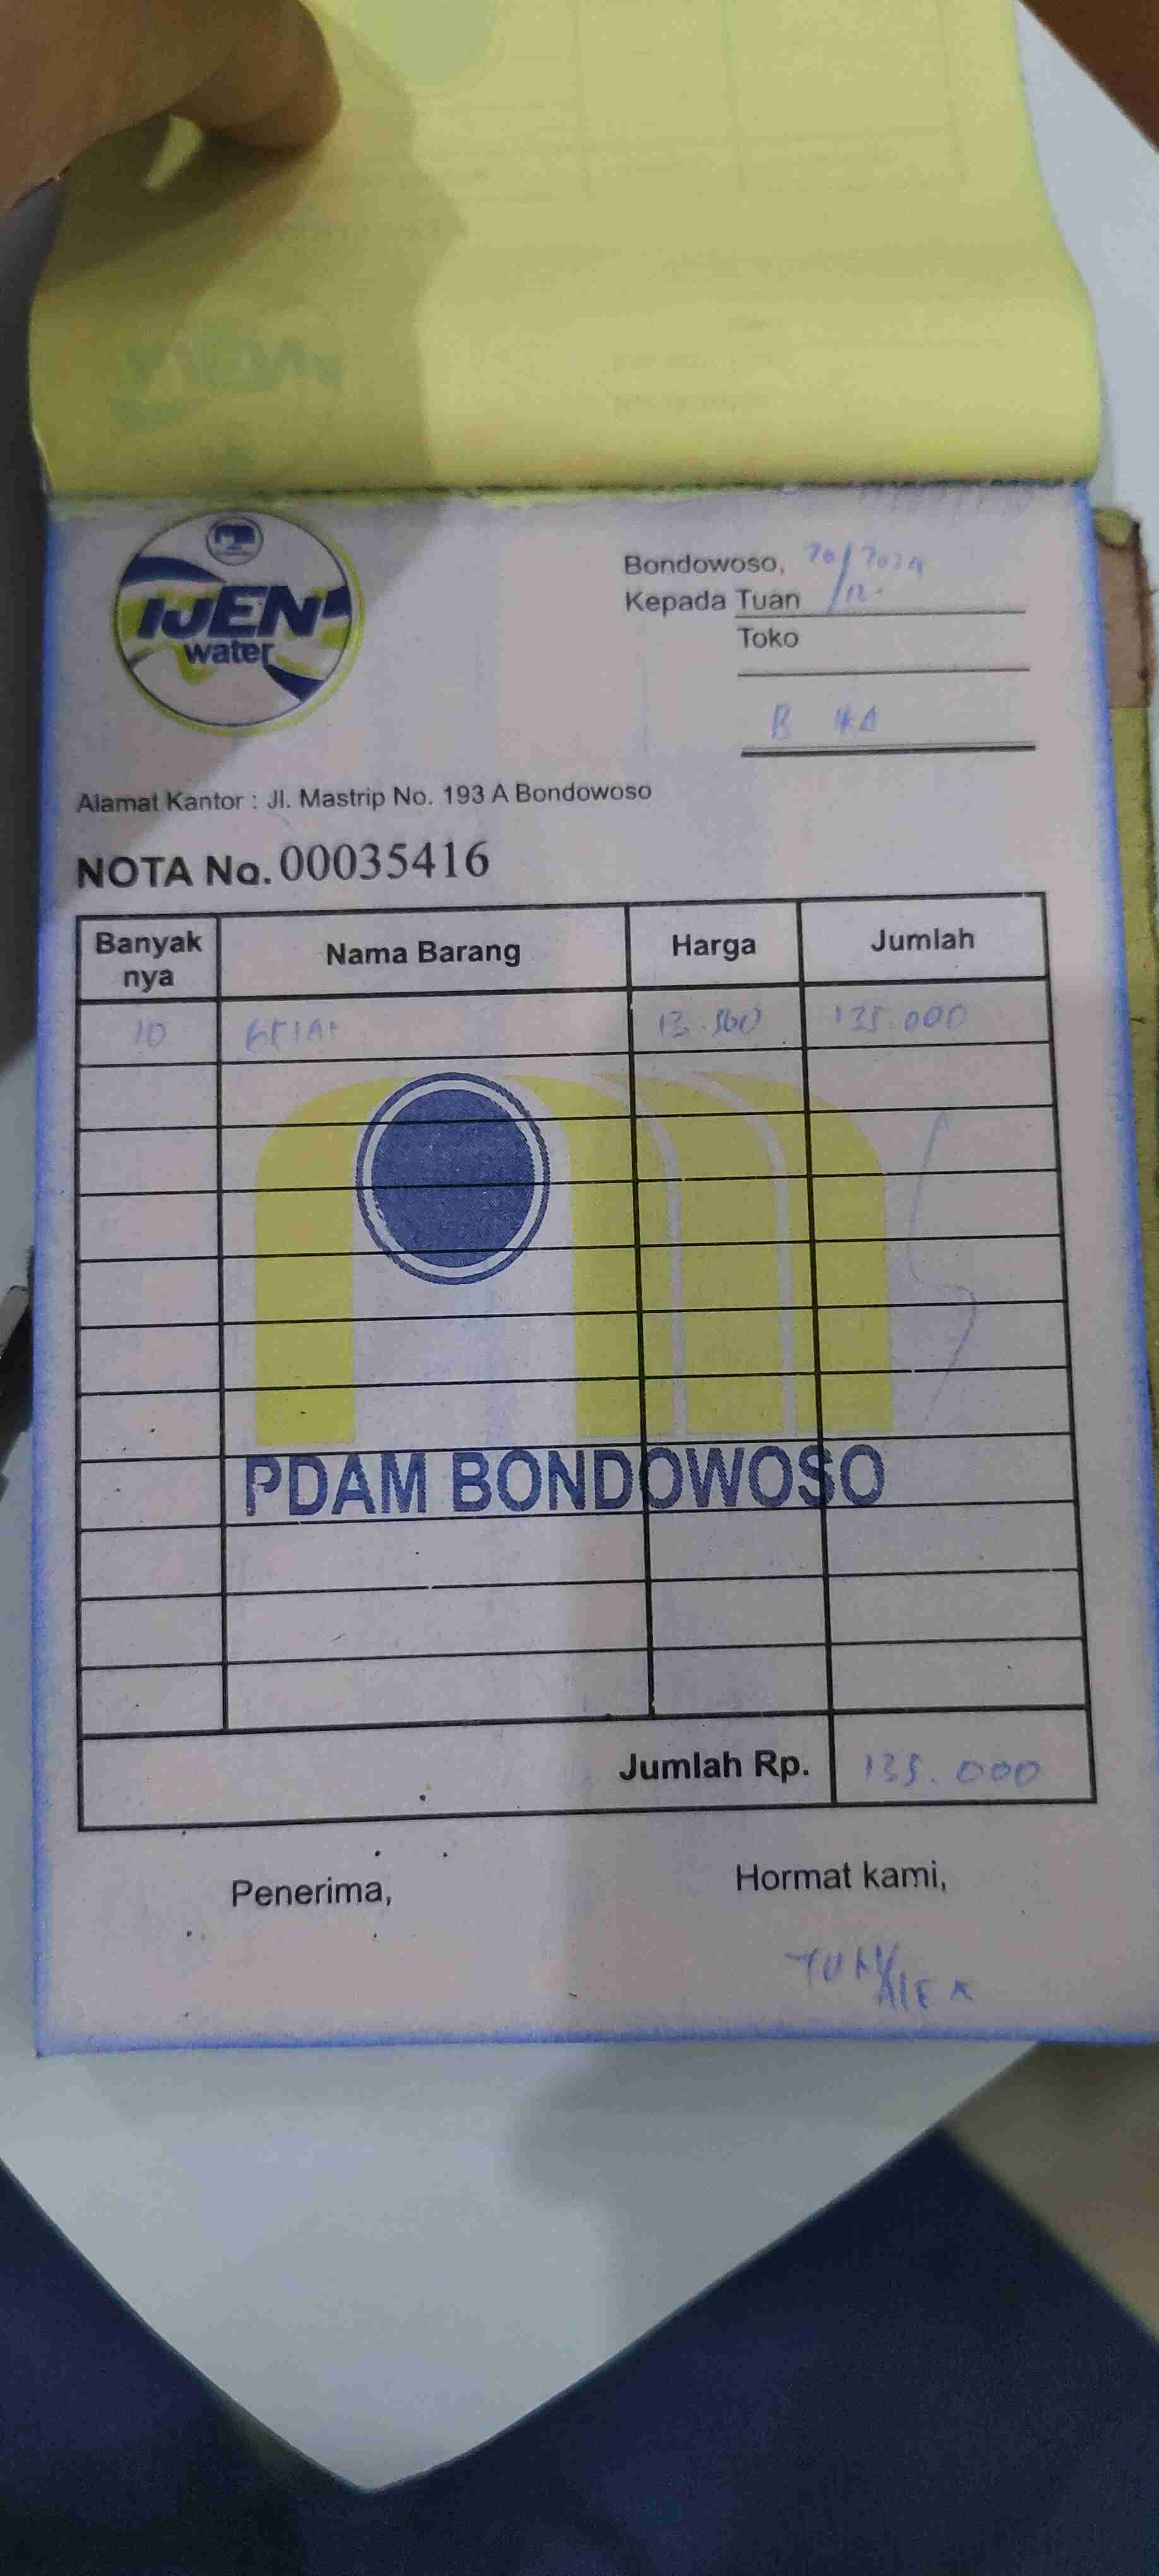 IJEN
water
Bondowoso, 20/12-2024
Kepada Tuan
Toko
Alamat Kantor : Jl. Mastrip No. 193 A Bondowoso
NOTA No. 00035416
Banyak nya Nama Barang Harga Jumlah
10 13.500 135.000
PDAM BONDOWOSO
Jumlah Rp. 135.000
Penerima, Hormat kami,
ALEX